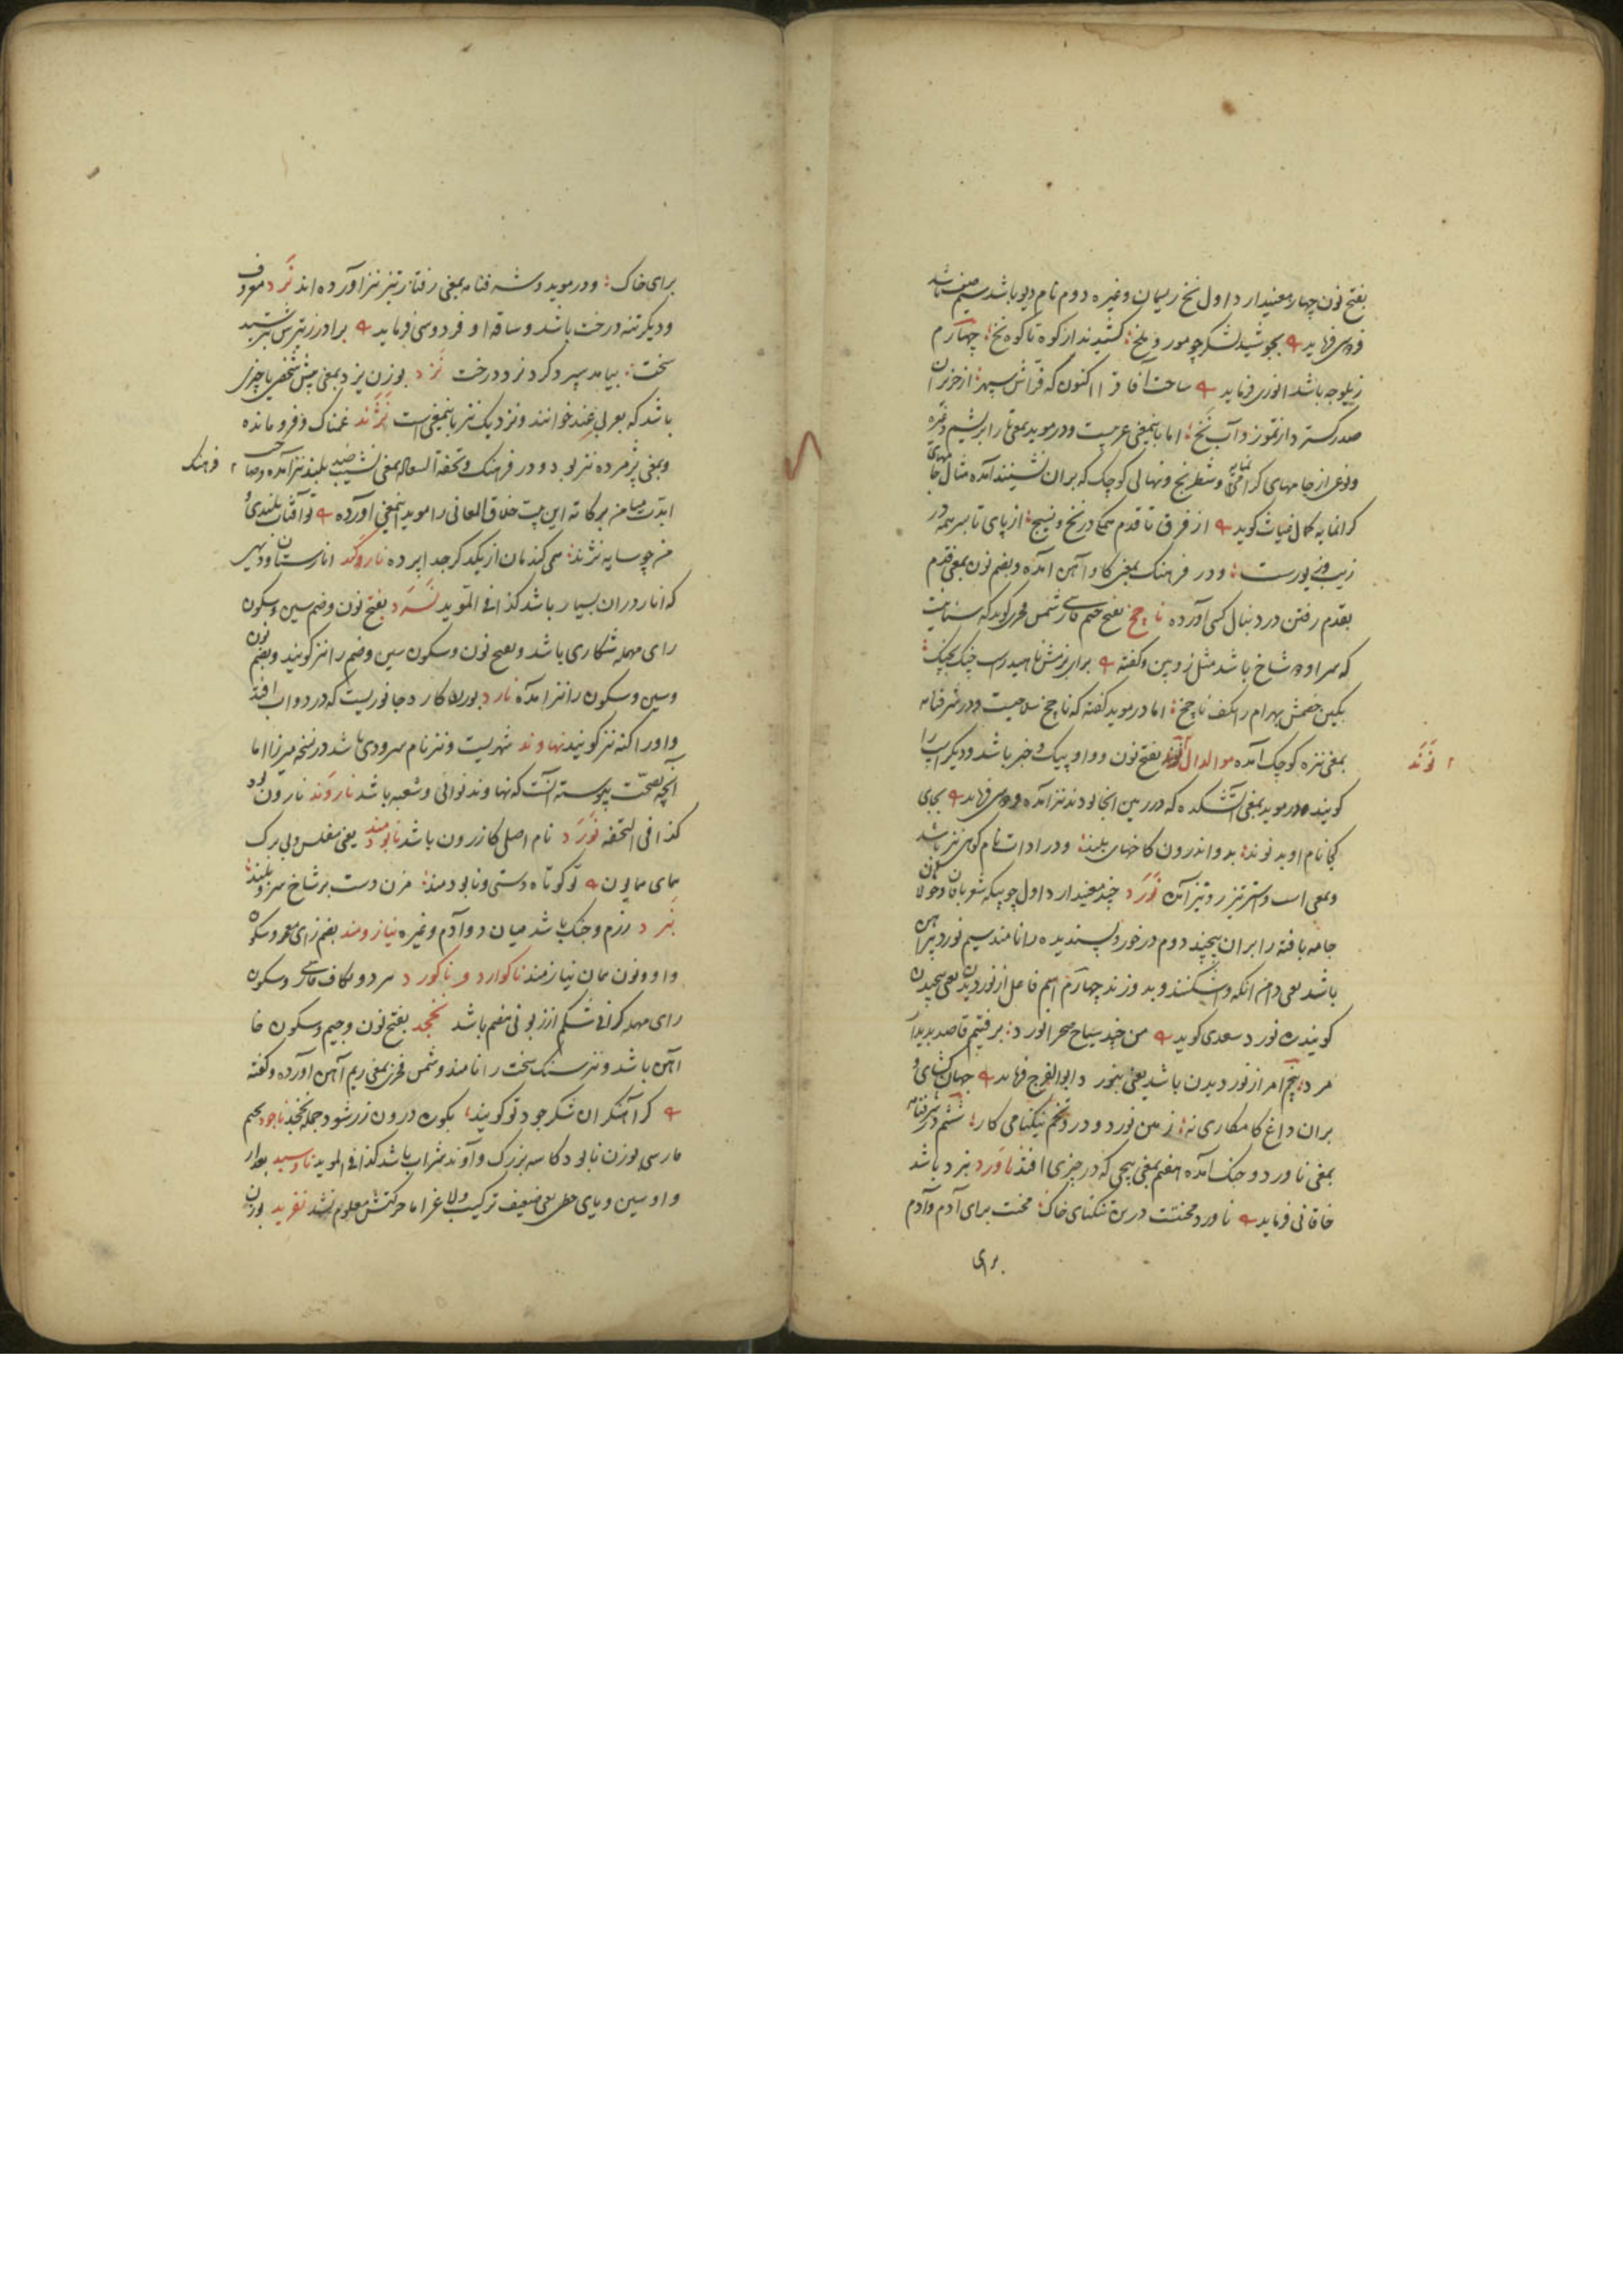 بفتح نون چهار معنیدارد اول نخ ریسمان وغیره دوم نام دیو باشد سیم صف باشد
فردوسی فرماید بجوشید لشکر چو مور و ملخ کشیدند از کوه تا کوه نخ چهارم
زیلوچه باشد انوری فرماید ساحت آفاق را اکنون که فراش سپهر از حزیران
صدر گسترد از تموز و آب نخ اما باینمعنی عربیست ودر موید بمعنی تار ابریشم وغیره
ونوعی از جامهای گرانمایه وشطرنج ونهالی کوچک که بران نشینند آمده مثال جامهای
گرانمایه کمال غیاث گوید از فرق تا قدم همگی در نخ و نسیج از پای تا بسر همه در
زیب و زیورست ودر فرهنگ بمعنی گاو آهن آمده وبضم نون بمعنی قدم
بقدم رفتن در دنبال کسی آورده ناچخ بفتح جیم فارسی شمس فخری گوید که سنانیست
که سر او دو شاخ باشد مثل زوبین وگفته برای بزمش ناهید راست چنگ بچنگ
بکین خصمش بهرام را بکف ناچخ اما در موید گفته که ناچخ سلاحیست ودر شرفنامه
بمعنی نیزه کوچک آمده مع الدال نوند بفتح نون وواو پیک وخبر باشد ودیگر اسپ را
۲ نوند
گویند ودر موید بمعنی آتشکده که در زمین
کجا نام او بد نوند بدو اندرون کاخهای بلند ودر ادات نام کوهی نیز باشد
وبمعنی اسب واستر تیز رو نیز آمده نورد چند معنیدارد اول چوبیکه شعربافان وجولاهان
جامه بافته را بران پیچند دوم درخور وپسندیده را نامند سیم نورد پیراهن
باشد یعنی دامن آنکه واشکنند وبدوزند چهارم اسم فاعل از نوردیدن یعنی پیچیدن
گویند ره نورد سعدی گوید من چند سیاح صحرا نورد برفتیم قاصد بدیدار
مرد پنجم امر از نوردیدن باشد یعنی بنورد ابوالفرج فرماید جهان گشای و
بران داغ کامکاری نه زمین نورد و درو تخم نیکنامی کار ششم در شرفنامه
بمعنی ناورد وجنگ آمده هفتم بمعنی پیچی که در چیزی افتد ناورد نبرد باشد
خاقانی فرماید ناورد محنتست درین تنگنای خاک محنت برای آدم وآدم
برای
برای خاک ودر موید وشرفنامه بمعنی رفتار تیز نیز آورده اند نرد معروف
ودیگر تنه درخت باشد وساقه او فردوسی فرماید برادر ز تیرش بترسید
سخت بیامد سپر کرد نرد درخت نزد بوزن یزد بمعنی پیش شخصی یا چیزی
باشد که بعربی عند خوانند ونزدیک نیز باینمعنی است نژند غمناک وفرومانده
وبمعنی پژمرده نیز بود ودر فرهنگ وتحفة السعاده بمعنی نشیب ضد بلند نیز آمده وصاحب ۲ فرهنگ
این بیت خلاق المعانی را موید اینمعنی آورده تو آفتاب بلندی و
من چو سایه نژند همی کند مان از یکدگر جدا پرده ناروکند انارستان ودیهی
که انار دران بسیار باشد کذا فی الموید نسرد بفتح نون وضم سین وسکون
رای مهمله شکاری باشد وبفتح نون وسکون سین وضم را نیز گویند وبضم نون
وسین وسکون را نیز آمده نارد بوزن کارد جانوریست که در دواب افتد
واورا کنه نیز گویند نهاوند شهریست ونیز نام سرودی باشد در نسخه میرزا اما
آنچه بصحت پیوسته آنست که نهاوند نوائی وشعبه باشد ناروند نارون بود
کذا فی التحفه نورد نام اصلی کازرون باشد نابودمند یعنی مفلس وبی برگ
تو کوتاه دستی ونابودمند مزن دست بر شاخ سرو بلند
نبرد رزم وجنگ باشد میان دو آدم وغیره نیازومند بضم زای معجمه وسکون
واو ونون همان نیازمند ناگوارد و ناگورد هر دو بکاف فارسی وسکون
رای مهمله گرانی شکم از زبونی هضم باشد نخجد بفتح نون وجیم وسکون خا
آهن باشد ونیز سنگ سخت را نامند وشمس فخری بمعنی ریم آهن آورده وگفته
گر آهنگران شکر جود تو گویند بکوره درون زر شود جمله نخجد ناجود بجیم
فارسی بوزن نابود کاسه بزرگ وآوند شراب باشد کذا فی الموید ناوسید بعد از
واو سین ویای حطی یعنی ضعیف ترکیب ولاغر اما حرکتش معلوم نشد نفرید بوزن